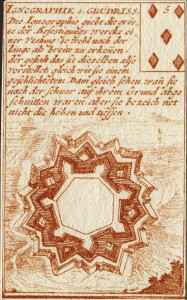 IGNOGRAPHIE, 6. GRUDRISS. 5
Die Ignographie giebt die grös
se der Befestigung wercke ei
ner Vestung so wohl nach der
länge als breite zu erkennen
der gestalt das sie dieselben also
vorstellet gleich wie sie einem
geschlichteten Dam gleich sehen wan sie
nach der schnur auf ihrem Grund abge
schnitten waren aber sie bezeich net
nicht die höhen und tieffen.